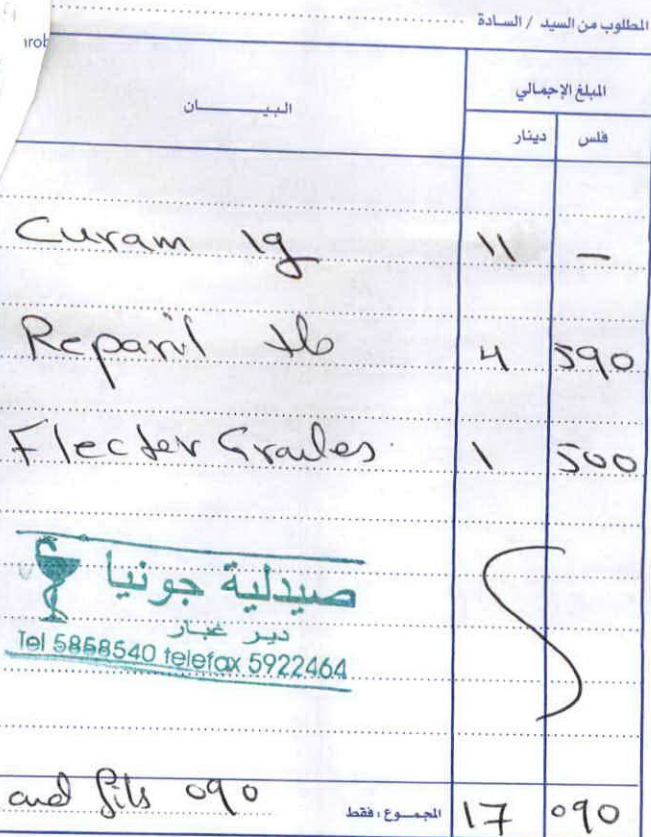 المطلوب من السيد / السادة
البيــــــــان المبلغ الإجمالي
دينار فلس
Curam 1g 11 —
Reparil tb 4 590
Flecter Grailes 1 500
صيدلية جونيا
دير غبار
Tel 5858540 telefax 5922464
and fils 090 المجمــوع : فقط 17 090